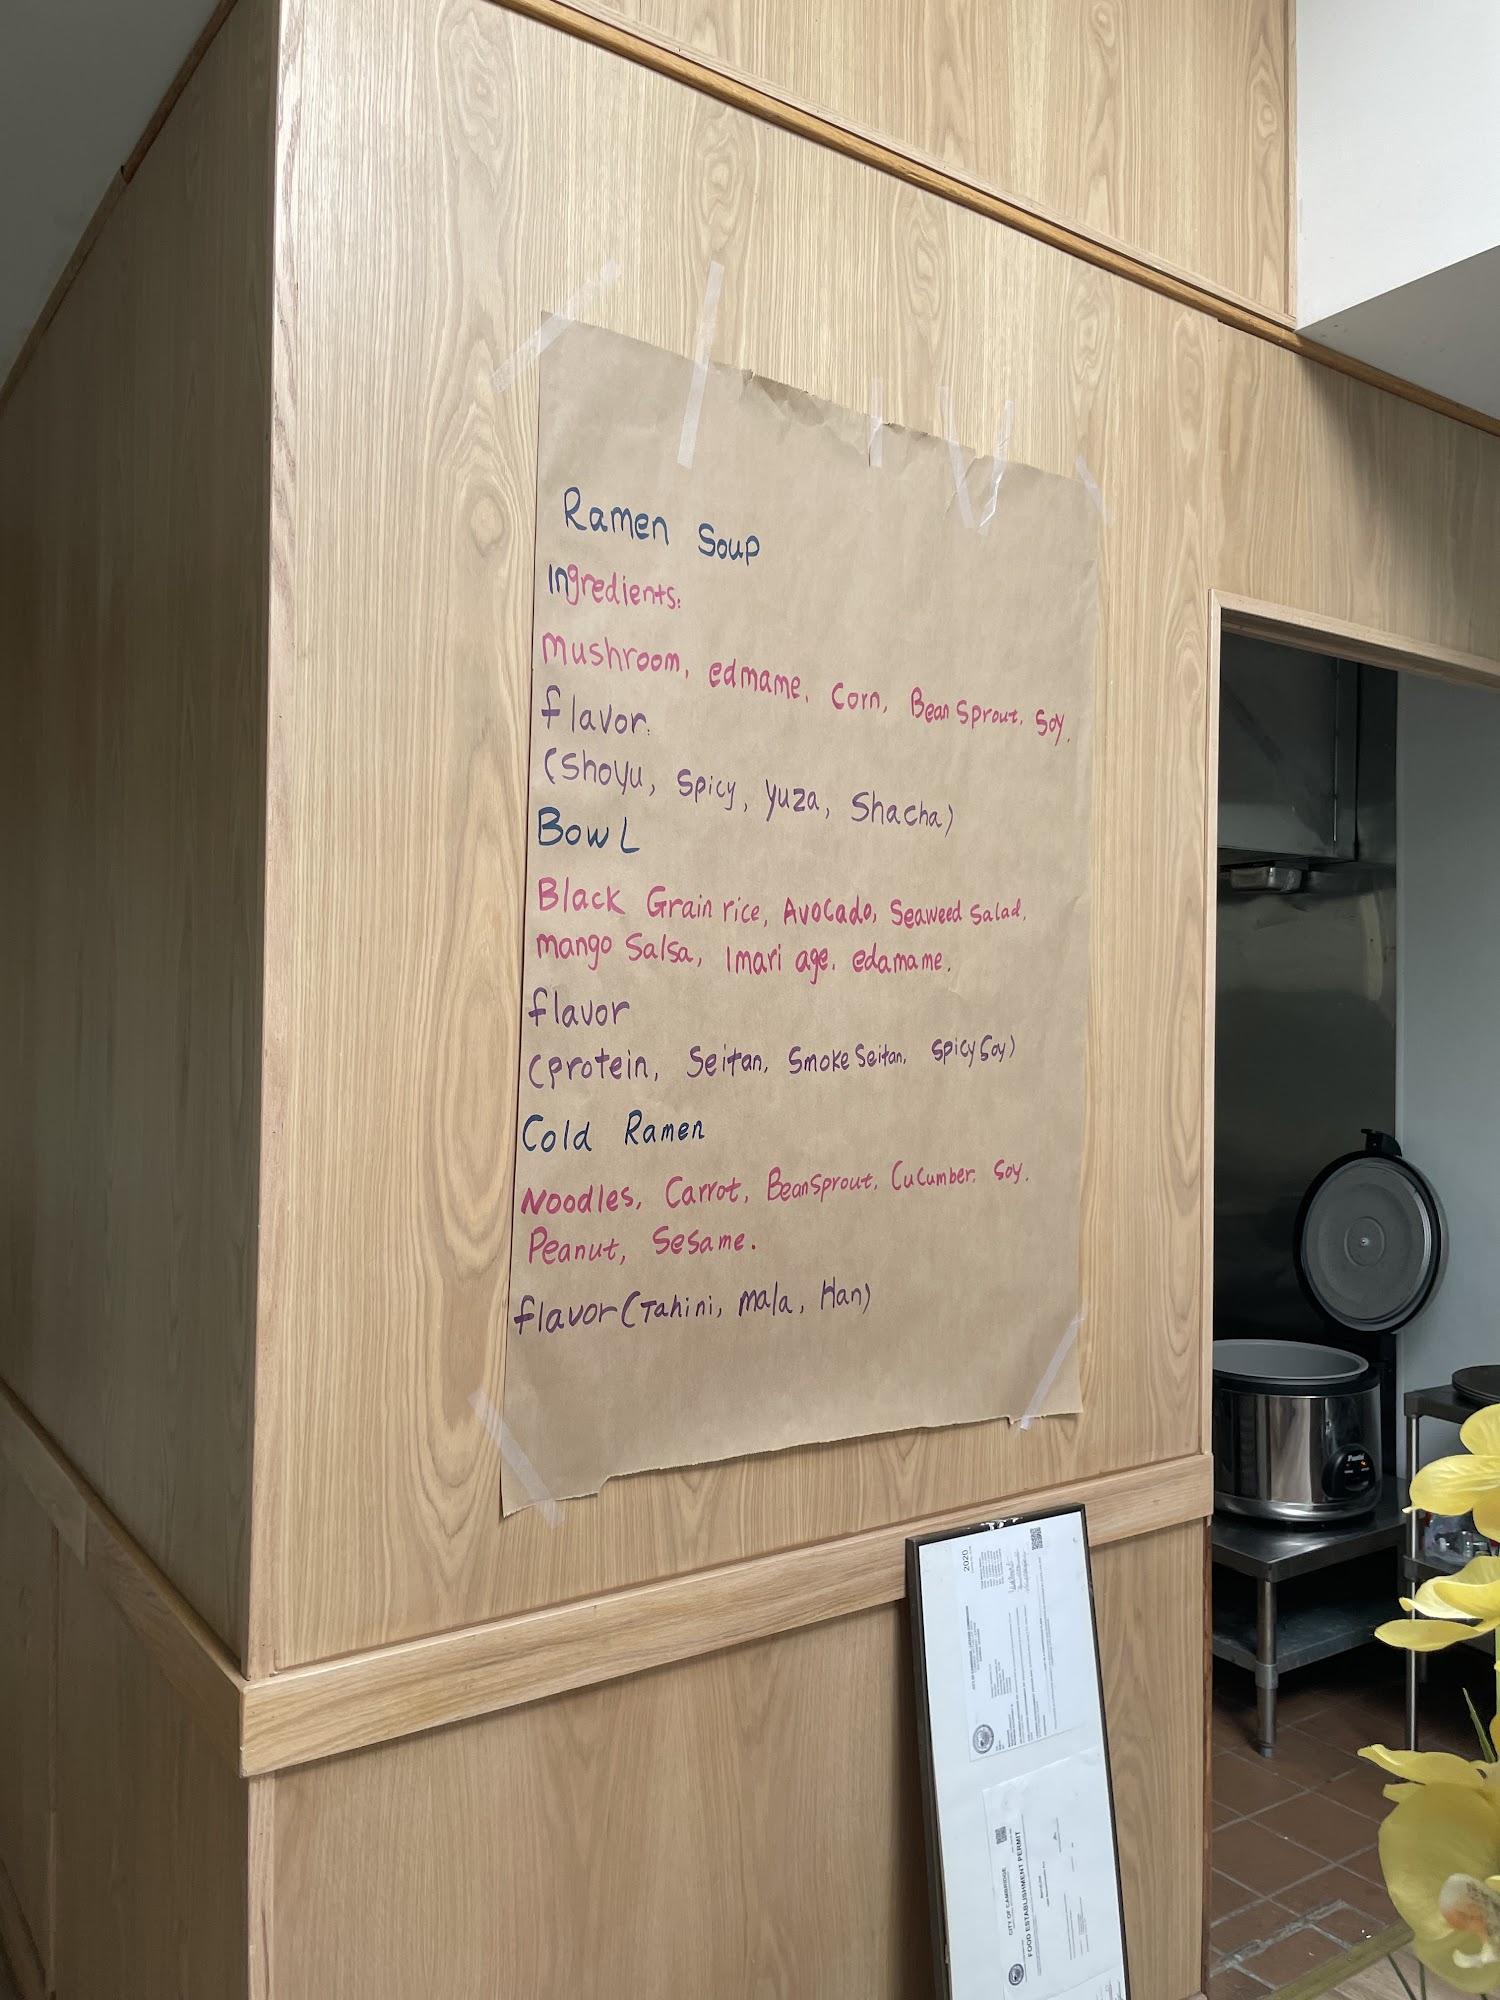 Ramen Soup
Ingredients:
Mushroom, edmame, Corn, Bean Sprout, Soy.
flavor:
(Shoyu, Spicy, Yuza, Shacha)
Bowl
Black Grain rice, Avocado, Seaweed Salad,
mango Salsa, Imari age, edamame.
flavor
(Protein, Seitan, Smoke Seitan, Spicy Soy)
Cold Ramen
Noodles, Carrot, Bean Sprout, Cucumber, Soy,
Peanut, Sesame.
flavor (Tahini, Mala, Han)
2020
CITY OF CAMBRIDGE
FOOD ESTABLISHMENT PERMIT